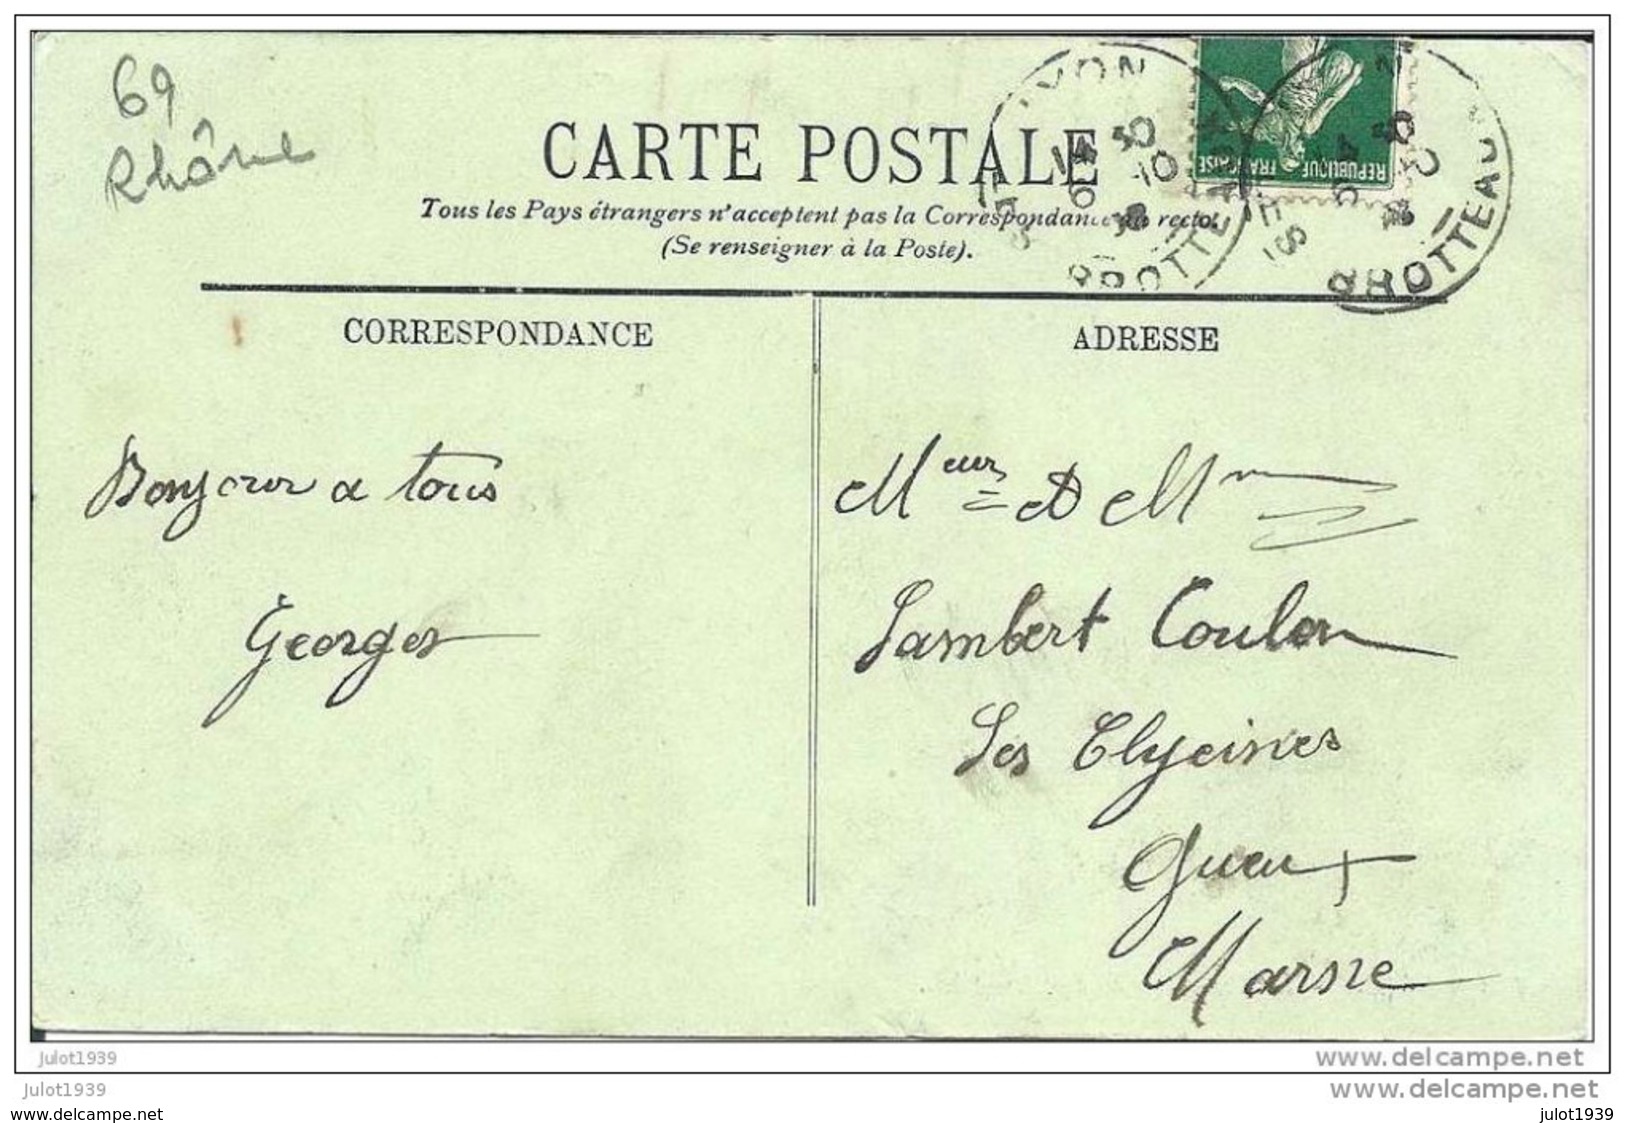 69
Rhône
CARTE POSTALE
Tous les Pays étrangers n'acceptent pas la Correspondance au recto.
(Se renseigner à la Poste).
LYON
BROTTEAUX
BROTTEAUX
REPUBLIQUE FRANÇAISE
CORRESPONDANCE
ADRESSE
Bonjour a tous
Georges
Meur et Mme
Lambert Coulon
Les Elyseines
Gueux
Marne
Julot1939
www.delcampe.net
Julot1939
www.delcampe.net
www.delcampe.com
julot1939